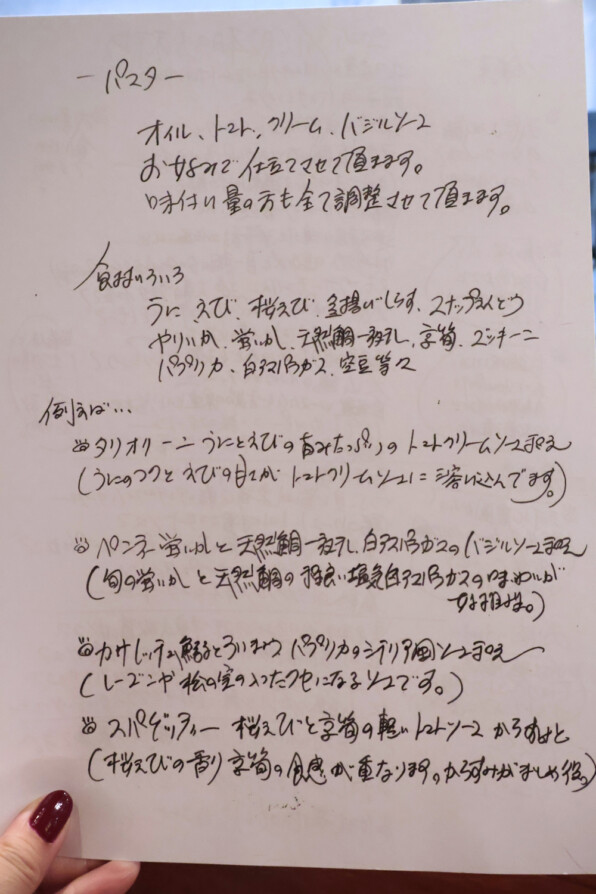 ーパスター
オイル、トマト、クリーム、バジルソース
お好みで仕立てさせて頂きます。
味付け量の方も全て調整させて頂きます。
食材いろいろ
うに えび、桜えび、釜揚げしらす、スナップえんどう
やりいか、蛍いか、天然鯛一夜干し、京筍、ズッキーニ
パプリカ、白アスパラガス、空豆等々
例えば…
タリオリーニ うにとえびの旨みたっぷりの トマトクリームソース和え
(うにのコクと えびの甘さが トマトクリームソースに溶け込んでます。)
ペンネ 蛍いかと天然鯛一夜干し、白アスパラガスのバジルソース和え
(旬の蛍いかと天然鯛の程良い塩気 白アスパラガスの味わいが
好相性。)
カサレッチェ と ズッキーニ パプリカのシチリア風ソース和え
(レーズンや松の実の入ったクセになるソースです。)
スパゲッティー 桜えびと京筍の軽いトマトソース からすみと
(桜えびの香り 京筍の食感が重なります。からすみがまた 後。)